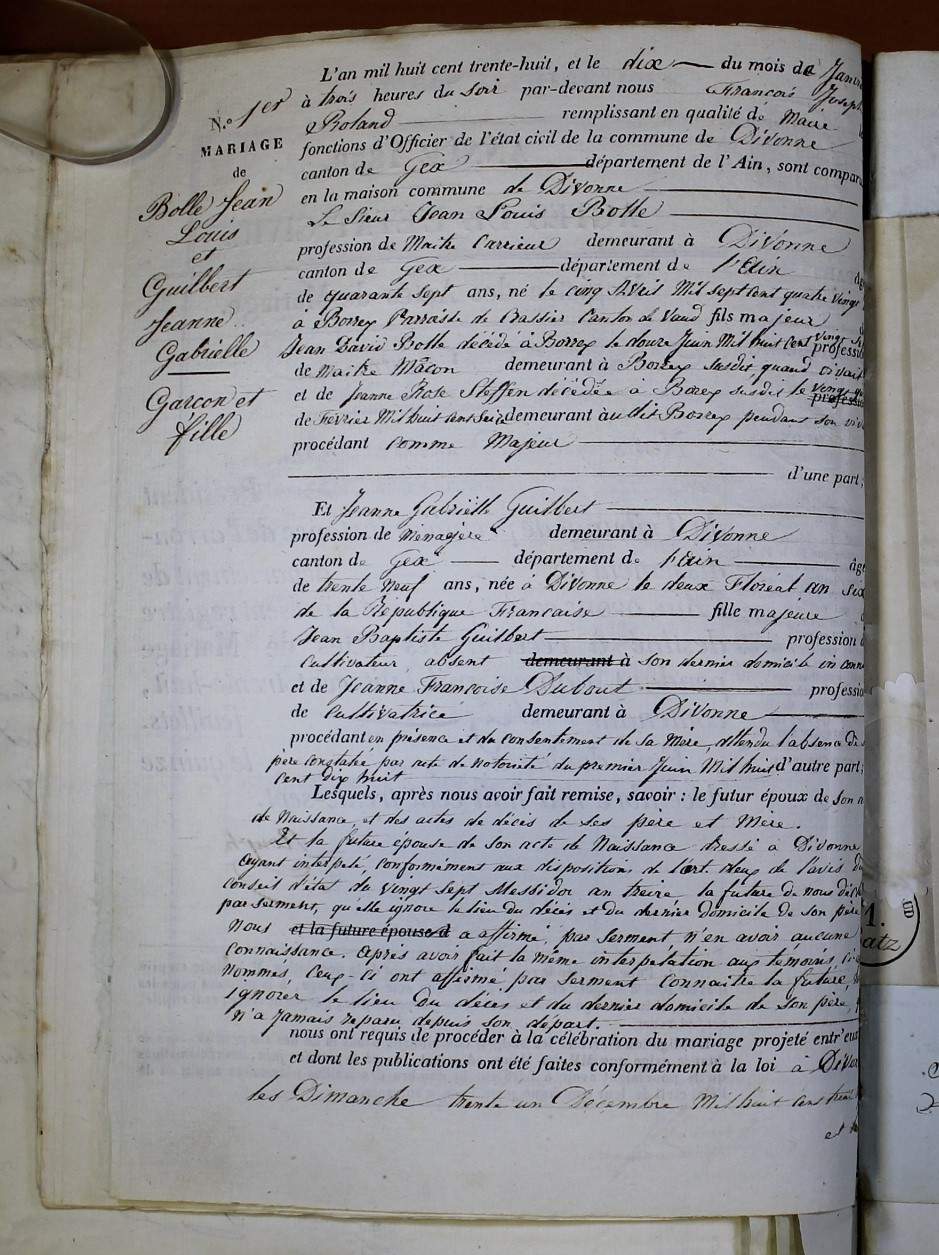 N.o 1er
MARIAGE
de
Bolle Jean
Louis
et
Guilbert
Jeanne
Gabrielle
Garcon et
fille
L'an mil huit cent trente-huit, et le dix du mois de
à trois heures du Soir par-devant nous François Joseph
Roland remplissant en qualité de Maire
fonctions d'Officier de l'état civil de la commune de Divonne
canton de Gex département de l'Ain, sont compar
en la maison commune de Divonne
Le Sieur Jean Louis Bolle
profession de Maitre Carrieur demeurant à Divonne
canton de Gex département de l'Ain
de quarante Sept ans, né le cinq Avril Mil Sept Cent quatre Vingt
à Borrex Parroisse de Crassier Canton de Vaud fils majeur
Jean David Bolle décédé à Borrex le douze Juin Mil huit Cent Vingt
professi
de Maitre Mâcon demeurant à Borrex Susdit quand vivait
et de Jeanne Rose Steffen décédée à Borex Susdit le Vingt
profession
de Fevrier Mil huit Cent Seize demeurant audit Borrex pendant Son viv
procédant Comme Majeur
d'une part;
Et Jeanne Gabrielle Guilbert
profession de Menagère demeurant à Divonne
canton de Gex département de l'Ain âge
de trente Neuf ans, née à Divonne le deux Floréal an Six
de la République Francaise fille majeure
Jean Baptiste Guilbert profession
Cultivateur absent demeurant à Son dernier domicile in conn
et de Jeanne Francoise Dubout professio
de Cultivatrice demeurant à Divonne
procédant en présence et du Consentement de Sa Mère, attendu l'absence de
père constatée par acte de Notorieté du premier Juin Mil huit d'autre part;
Cent Dix huit
Lesquels, après nous avoir fait remise, savoir : le futur époux de Son
de Naissance, et des actes de décès de Ses père et Mère.
Et la future épouse de Son acte de Naissance dressé à Divonne
Ayant interpelé, conformément aux dispositions de l'art. deux de l'avis du
Conseil d'état du Vingt Sept Messidor an treize la future de nous décl
par Serment, qu'elle ignore le lieu du décès et du dernier domicile de Son père
Nous et la future épouse d a affirmé, par Serment, n'en avoir aucune
Connaissance. Après avoir fait la même interpelation aux témoins ci
Nommés, Ceux-ci ont affirmé, par Serment Connaitre la future,
ignorer le lieu du décès et du dernier domicile de Son père,
n'a jamais reparu depuis Son départ.
nous ont requis de procéder à la célébration du mariage projeté entr'eux
et dont les publications ont été faites conformément à la loi à Divon
les Dimanche trente un Décembre Mil huit Cent trent
et